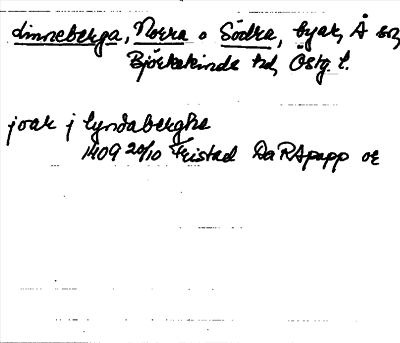 Linneberga, Norra o Södra, byar, Å sn,
Björkekinds hd, Östg l.
joar j lyndaberghe
1409 20/10 Fristad DaRApapp or